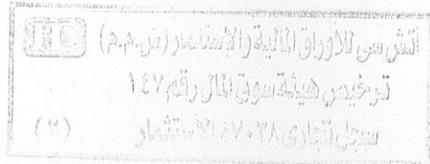 اتش سى للاوراق المالية والاستثمار (ش.م.م) HC
ترخيص هيئة سوق المال رقم ١٤٧
سجل تجارى ٤٧٠٣٨ الاستثمار (٣)